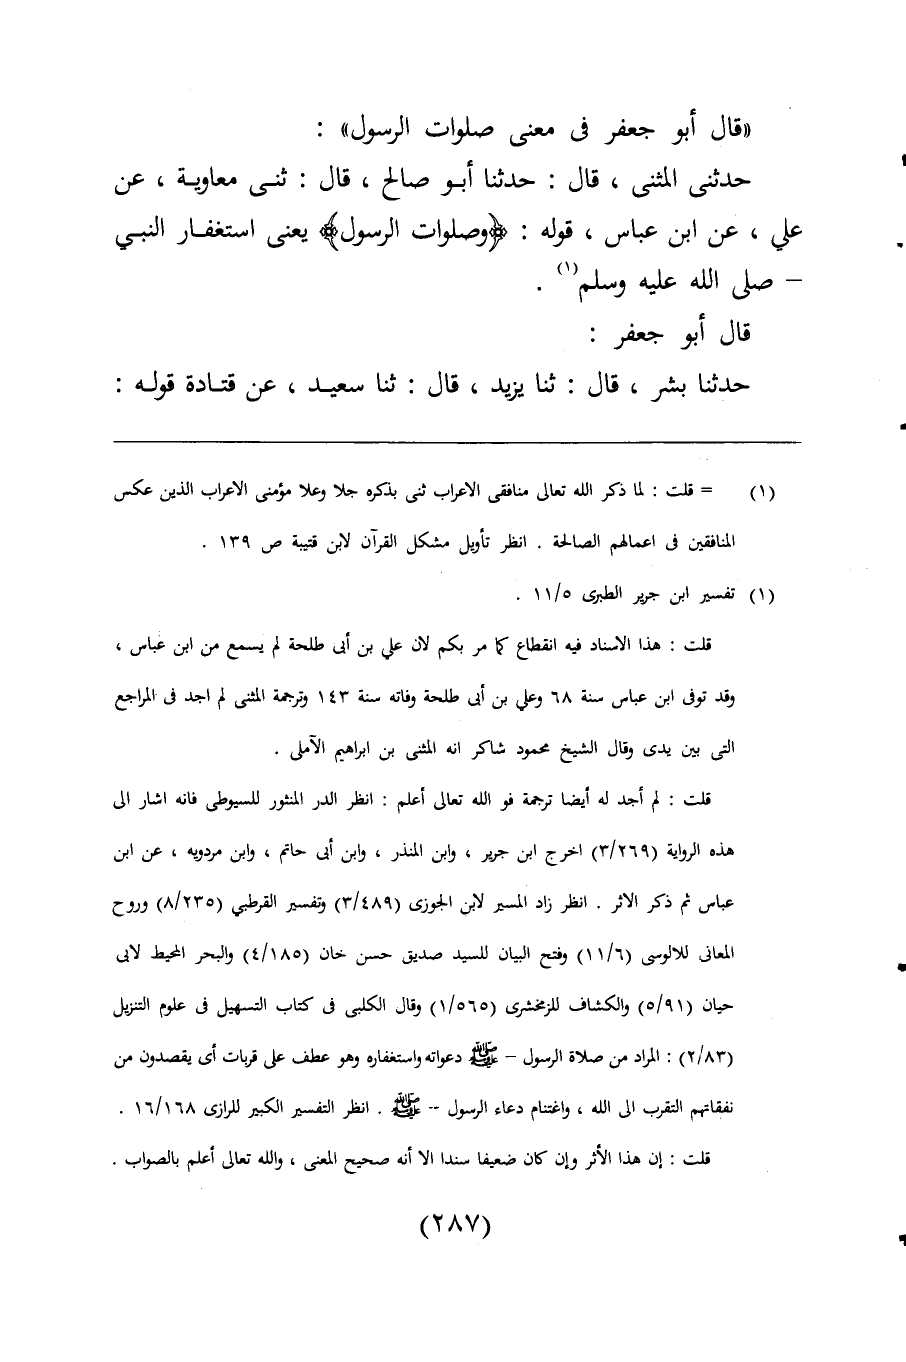 «قال أبو جعفر فى معنى صلوات الرسول» :
حدثنى المثنى ، قال : حدثنا أبو صالح ، قال : ثنى معاوية ، عن
علي ، عن ابن عباس ، قوله : ﴿وصلوات الرسول﴾ يعنى استغفار النبي
– صلى الله عليه وسلم(١) .
قال أبو جعفر :
حدثنا بشر ، قال : ثنا يزيد ، قال : ثنا سعيد ، عن قتادة قوله :
(١) = قلت : لما ذكر الله تعالى منافقى الاعراب ثنى بذكره جلا وعلا مؤمنى الاعراب الذين عكس
المنافقين فى اعمالهم الصالحة . انظر تأويل مشكل القرآن لابن قتيبة ص ١٣٩ .
(١) تفسير ابن جرير الطبرى ١١/٥ .
قلت : هذا الاسناد فيه انقطاع كما مر بكم لان علي بن أبى طلحة لم يسمع من ابن عباس ،
وقد توفى ابن عباس سنة ٦٨ وعلي بن أبى طلحة وفاته سنة ١٤٣ وترجمة المثنى لم اجد فى المراجع
التى بين يدى وقال الشيخ محمود شاكر انه المثنى بن ابراهيم الآملى .
قلت : لم أجد له أيضا ترجمة فو الله تعالى أعلم : انظر الدر المنثور للسيوطى فانه اشار الى
هذه الرواية (٣/٢٦٩) اخرج ابن جرير ، وابن المنذر ، وابن أبى حاتم ، وابن مردويه ، عن ابن
عباس ثم ذكر الاثر . انظر زاد المسير لابن الجوزى (٣/٤٨٩) وتفسير القرطبي (٨/٢٣٥) وروح
المعانى للالوسى (١١/٦) وفتح البيان للسيد صديق حسن خان (٤/١٨٥) والبحر المحيط لابى
حيان (٥/٩١) والكشاف للزمخشرى (١/٥٦٥) وقال الكلبى فى كتاب التسهيل فى علوم التنزيل
(٢/٨٣) : المراد من صلاة الرسول – ﷺ دعواته واستغفاره وهو عطف على قربات أى يقصدون من
نفقاتهم التقرب الى الله ، واغتنام دعاء الرسول -- ﷺ . انظر التفسير الكبير للرازى ١٦/١٦٨ .
قلت : إن هذا الأثر وإن كان ضعيفا سندا الا أنه صحيح المعنى ، والله تعالى أعلم بالصواب .
(٢٨٧)